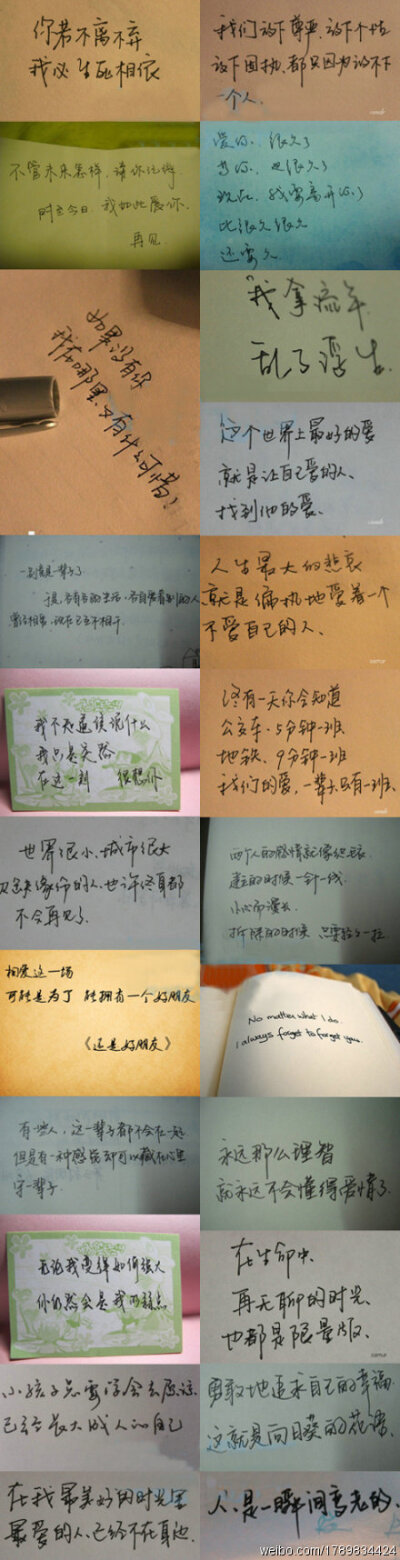 你若不离不弃
我必生死相依
我们放下尊严、放下个性
放下固执、都只因为放不下
一个人.
不管未来怎样，请你记得
时至今日，我如此爱你.
再见.
爱你、很久了
等你、也很久了
现在、我要离开你了
比很久很久
还要久
我拿流年
乱了浮生.
如果没有你
我在哪里又有什么可惜
这个世界上最好的爱
就是让自己爱的人、
找到他的爱、
一别就是一辈子
曾经相亲、现在已互不相干
人生最大的悲哀
就是偏执地爱着一个
不爱自己的人、
我不知道该说什么
我只是突然
在这一刻 很想你
终有一天你会知道
公交车、5分钟一班
地铁、9分钟一班
我们的爱，一辈子只有一班、
世界很小、城市很大
缘份的人、也许终身都
不会再见了.
两个人的感情就像织毛衣
建立的时候一针一线
小心而漫长
拆除的时候 只要轻轻一拉
相爱这一场
可能是为了 能拥有一个好朋友
《还是好朋友》
No matter what I do.
I always forget to forget you.
有些人，这一辈子都不会在一起
但是有一种感觉却可以藏在心里
守一辈子
永远那么理智
就永远不会懂得爱情了
无论我变得如何强大
你仍然会是我的弱点
在生命中
再无聊的时光、
也都是限量版.
小孩子总要学会去原谅
已经长大成人的自己
勇敢地追求自己的幸福
这就是向日葵的花语.
在我最美好的时光里
最爱的人、已经不在身边
人、是一瞬间变老的、
weibo.com/1789834424